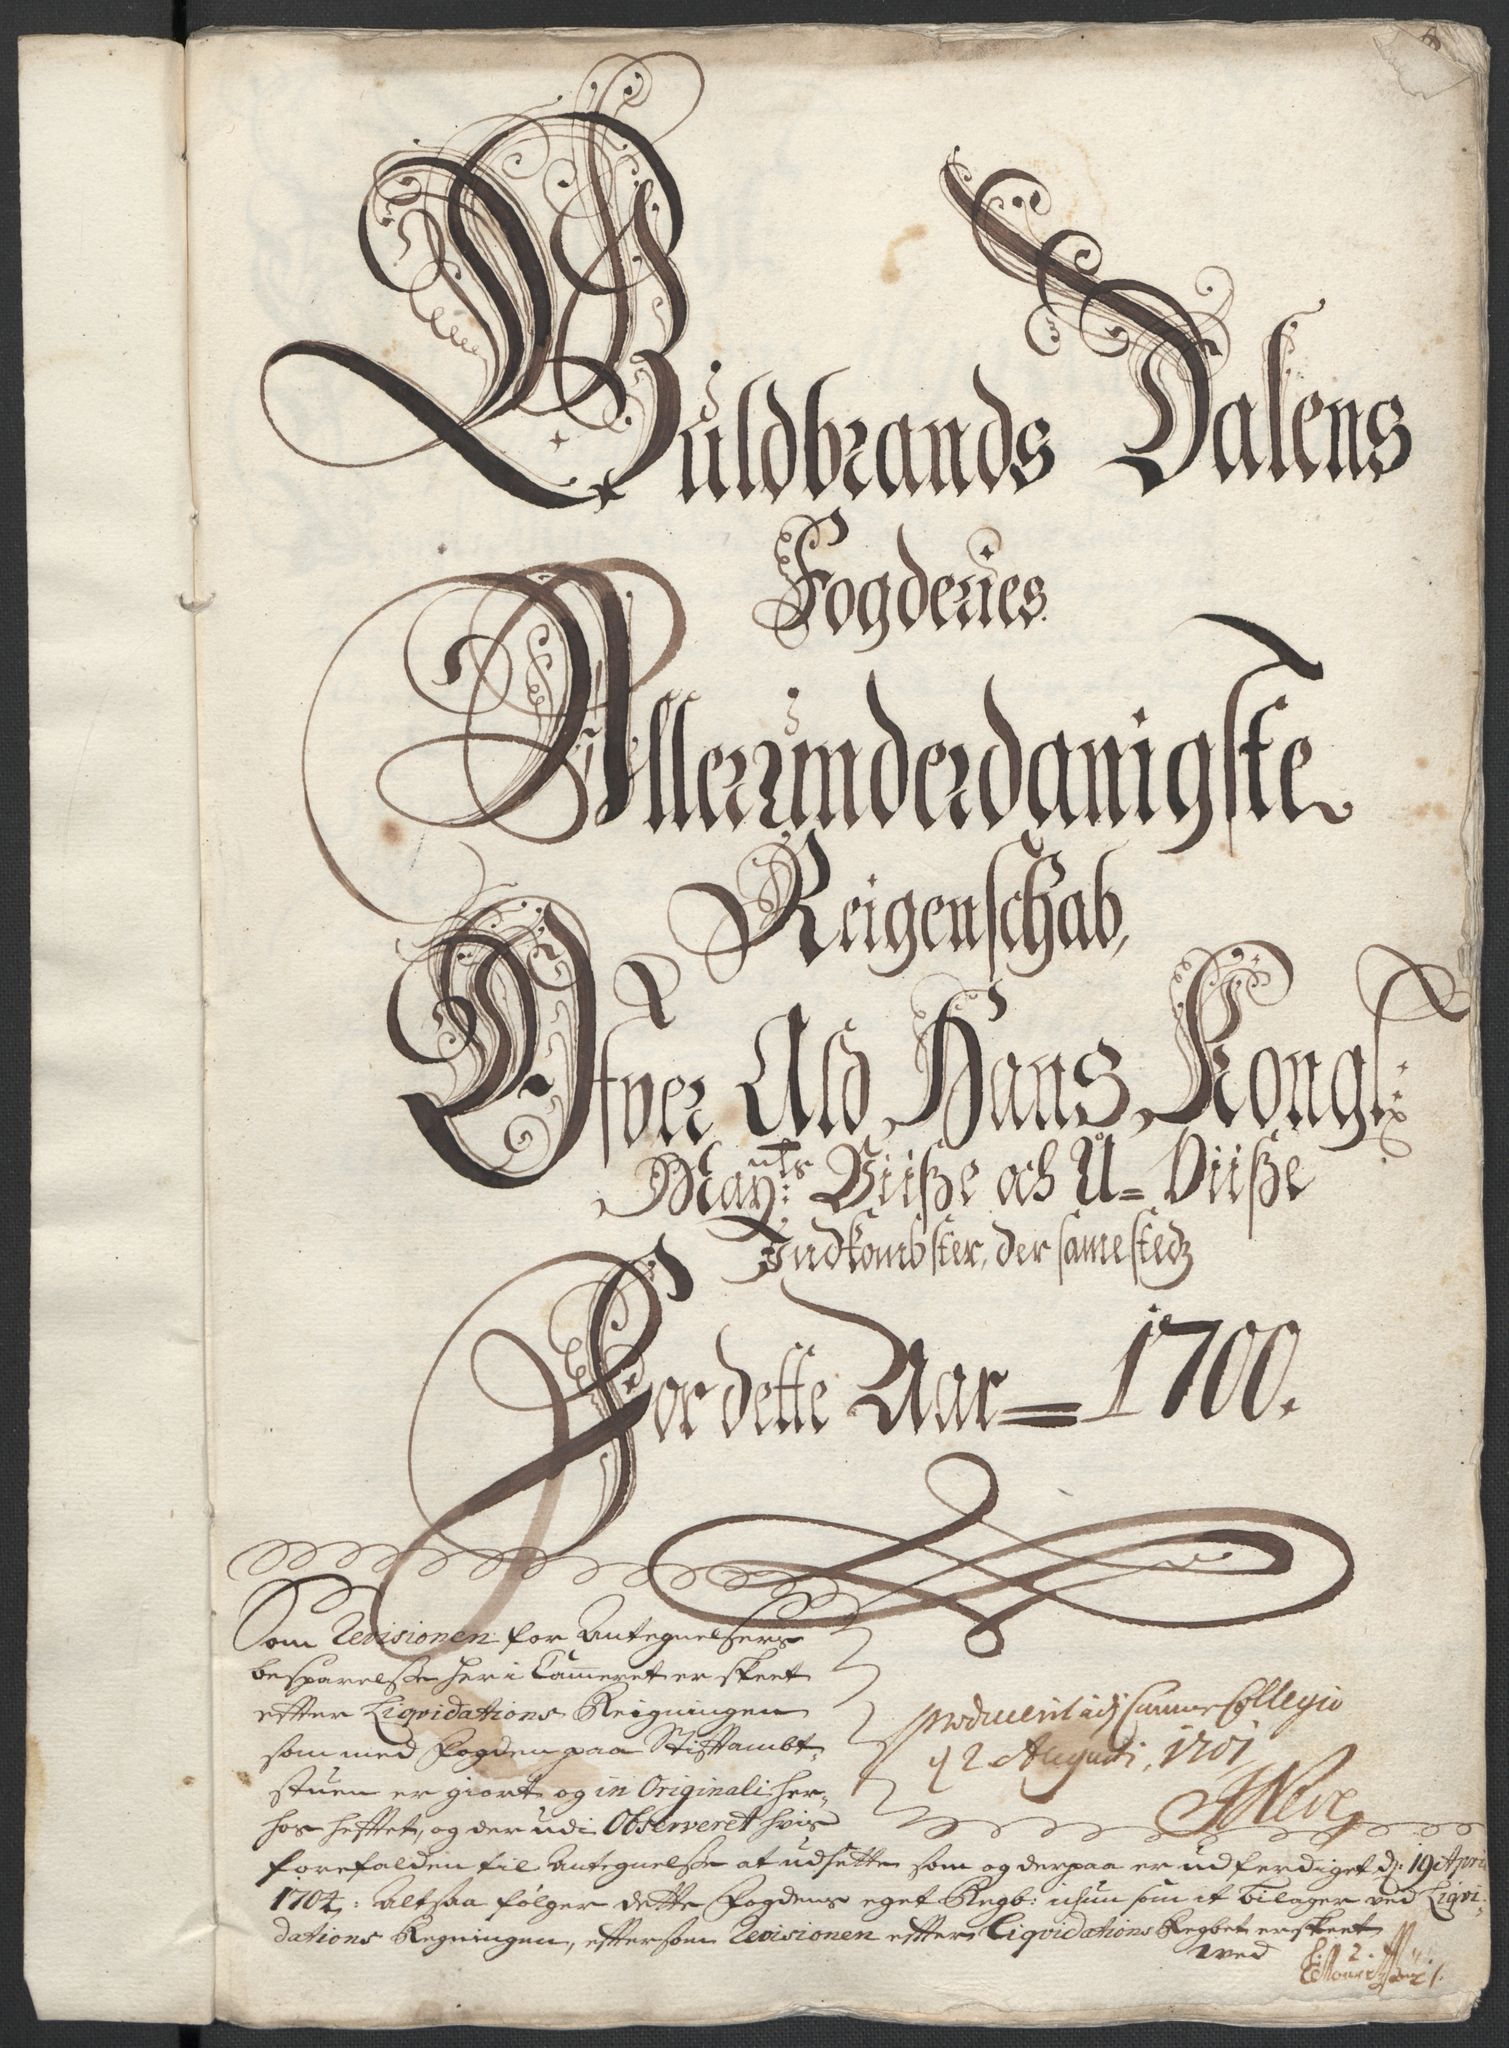 Guldbrands Dalens
Fogderies
Allerunderdanigste
Reigenschab,
Ofver Ald Hans Kongl:
Mayts: Viiße och U=Viiße
Indkombster, der samestedz
For dette Aar = 1700.
Som Revisionen for Antegnelsers
besparelse her i Cammeret er skeet
efter Liqvidations Reigningen
som med fogden paa Stiftambt-
stuen er giort og in Originali her-
hos heftet, og der udi Observeret hvis
forefalden til antegnelse at udsette som og derpaa er udferdiget d: 19 April
1704: altsaa følger dette fogdens eget Regb: ichun som it bilager ved Liqvi-
dations Regningen, eftersom Revisionen efter Liqvidations Regbet er skeet
ved
producerit udj Cammer Collegio
d 2 Augusti, 1701